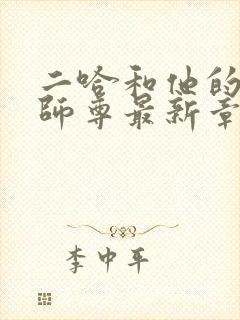 二哈和他的
师尊最新章
李中平